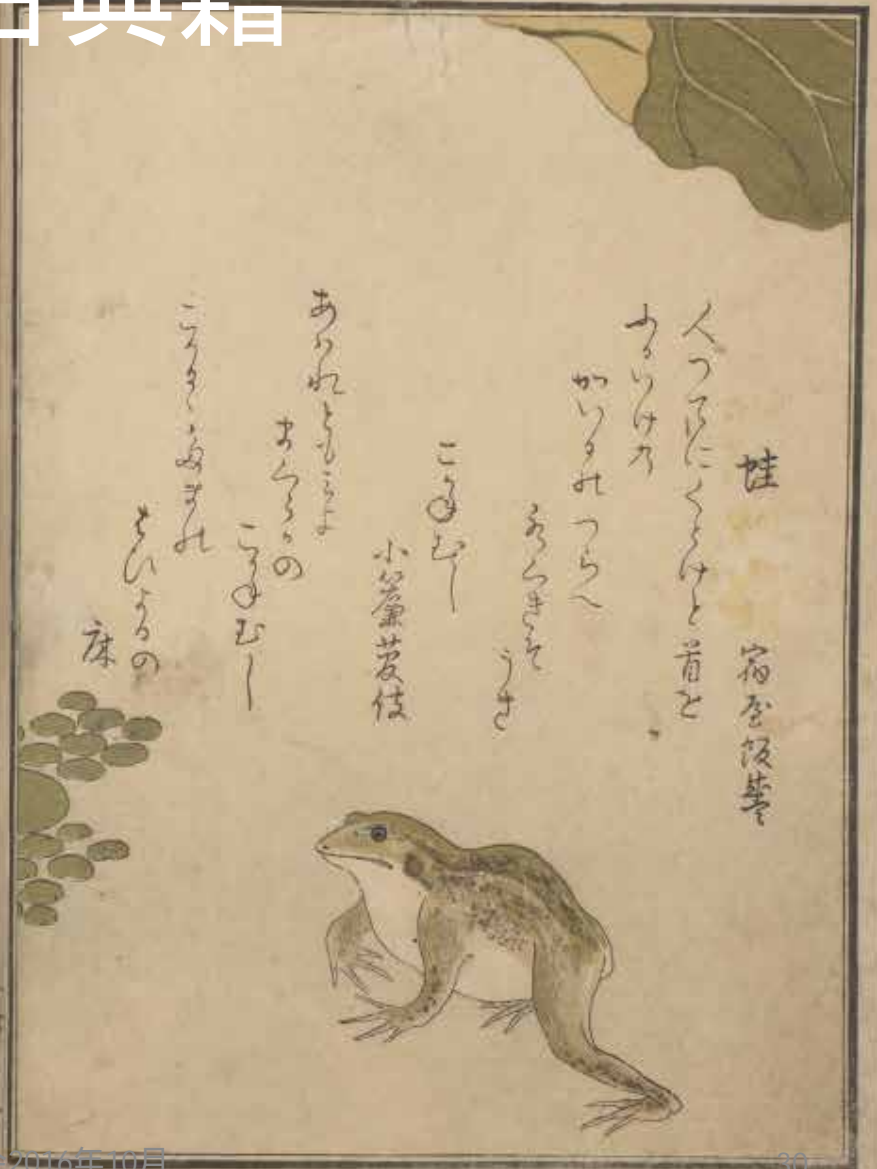 典籍
蛙　宿屋飯盛
人つてにくとけと首を
ふるいけの
かいるのつらへ
水くきそ
うき
こかねむし
小簾 伎
あはれともみよ
まくらの
こかねむし
こかるゝたまの
はひよるの
床
2016年10月